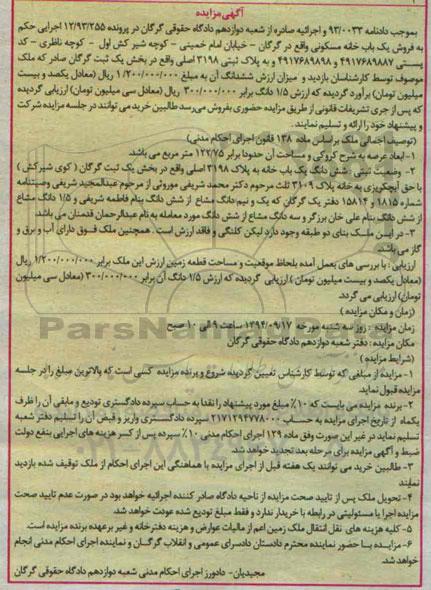 آگهی مزایده
بموجب دادنامه ۹۳/۰۰۳۳ و اجرائیه صادره از شعبه دوازدهم دادگاه حقوقی گرگان در پرونده ۱۲/۹۳/۲۵۵ اجرایی حکم
به فروش یک باب خانه مسکونی واقع در گرگان - خیابان امام خمینی - کوچه شیر کش اول - کوچه ناظری - کد
پستی ۴۹۱۷۶۸۹۸۸۷ و ۴۹۱۷۶۸۹۸۹۸ و به پلاک ثبتی ۳۱۹۸ اصلی واقع در بخش یک ثبت گرگان صادر که ملک
موصوف توسط کارشناسان بازدید و میزان ارزش ششدانگ آن به مبلغ ۱/۲۰۰/۰۰۰/۰۰۰ ریال (معادل یکصد و بیست
میلیون تومان) برآورد گردیده که ارزش ۱/۵ دانگ برابر ۳۰۰/۰۰۰/۰۰۰ ریال (معادل سی میلیون تومان) ارزیابی گردیده
که پس از جری تشریفات قانونی از طریق مزایده حضوری بفروش می‌رسد طالبین خرید می توانند در جلسه مزایده شرکت
و پیشنهاد خود را ارائه و تسلیم نمایند.
(توصیف اجمالی ملک براساس ماده ۱۳۸ قانون اجرای احکام مدنی)
۱- ابعاد عرصه به شرح کروکی و مساحت آن حدودا برابر ۱۲۲/۷۵ متر مربع می باشد.
۲- وضعیت ثبتی : شش دانگ یک باب خانه به پلاک ۳۱۹۸ اصلی واقع در بخش یک ثبت گرگان ( کوی شیرکش )
با حق آبچکریزی به خانه پلاک ۳۱۰۹ ثلث مرحوم دکتر محمد شریفی موروثی از مرحوم عبدالمجید شریفی وصیتنامه
شماره ۱۸۱۵ و ۱۵۸۱۴ دفتر یک گرگان که یک و نیم دانگ مشاع از شش دانگ بنام فاطمه شریفی و ۱/۵ دانگ مشاع
از شش دانگ بنام علی خان برزگر و سه دانگ مشاع از شش دانگ مورد معامله به نام عبدالرحمان قدمنان می باشد.
۳- در ایسن ملک بنای دو طبقه وجود دارد لیکن کلنگی و فاقد ارزش است . همچنین ملک فوق دارای آب و برق و
گاز می باشد.
ارزیابی : با بررسی های بعمل آمده بلحاظ موقعیت و مساحت قطعه زمین ارزش این ملک برابر ۱/۲۰۰/۰۰۰/۰۰۰ ریال
(معادل یکصد و بیست میلیون تومان ) ارزیابی گردیده که ارزش ۱/۵ دانگ آن برابر ۳۰۰/۰۰۰/۰۰۰ (معادل سی میلیون
تومان) ارزیابی می گردد.
(زمان و مکان مزایده )
زمان مزایده : روز سه شنبه مورخه ۱۳۹۴/۰۹/۱۷ ساعت ۹ الی ۱۰ صبح
مکان مزایده : دفتر شعبه دوازدهم دادگاه حقوقی گرگان
(شرایط مزایده )
۱- مزایده از مبلغی که توسط کارشناس تعیین گردیده شروع و برنده مزایده کسی است که بالاترین مبلغ را در جلسه
مزایده قبول نماید.
۲- برنده مزایده می بایست که ۱۰٪ مبلغ مورد پیشنهاد را نقدا به حساب سپرده دادگستری تودیع و مابقی آن را ظرف
یکماه از تاریخ اجرای مزایده به حساب ۲۱۷۱۲۹۴۷۷۸۰۰۰ سپرده دادگستری واریز و قبض آن را تسلیم دفتر شعبه
تسلیم نماید در غیر این صورت وفق ماده ۱۲۹ اجرای احکام مدنی ۱۰٪ سپرده پس از کسر هزینه های اجرایی بنفع دولت
ضبط و آگهی مزایده برای مرحله بعد تجدید خواهد شد.
۳- طالبین خرید می توانند یک هفته قبل از اجرای مزایده با هماهنگی این اجرای احکام از ملک توقیف شده بازدید
نمایند
۴- تحویل ملک پس از تایید صحت مزایده از ناحیه دادگاه صادر کننده اجرائیه خواهد بود در صورت عدم تایید صحت
مزایده اجرا یا مسئولیتی در رابطه با خریدار ندارد و فقط مبلغ تودیع شده عودت خواهد شد.
۵- کلیه هزینه های نقل انتقال ملک زمین اعم از مالیات عوارض و هزینه دفترخانه و غیر برعهده برنده مزایده است.
۶- مزایده با حضور نماینده محترم دادستان دادسرای عمومی و انقلاب گرگان و نماینده اجرای احکام مدنی انجام
خواهد شد.
مجیدیان- دادورز اجرای احکام مدنی شعبه دوازدهم دادگاه حقوقی گرگان